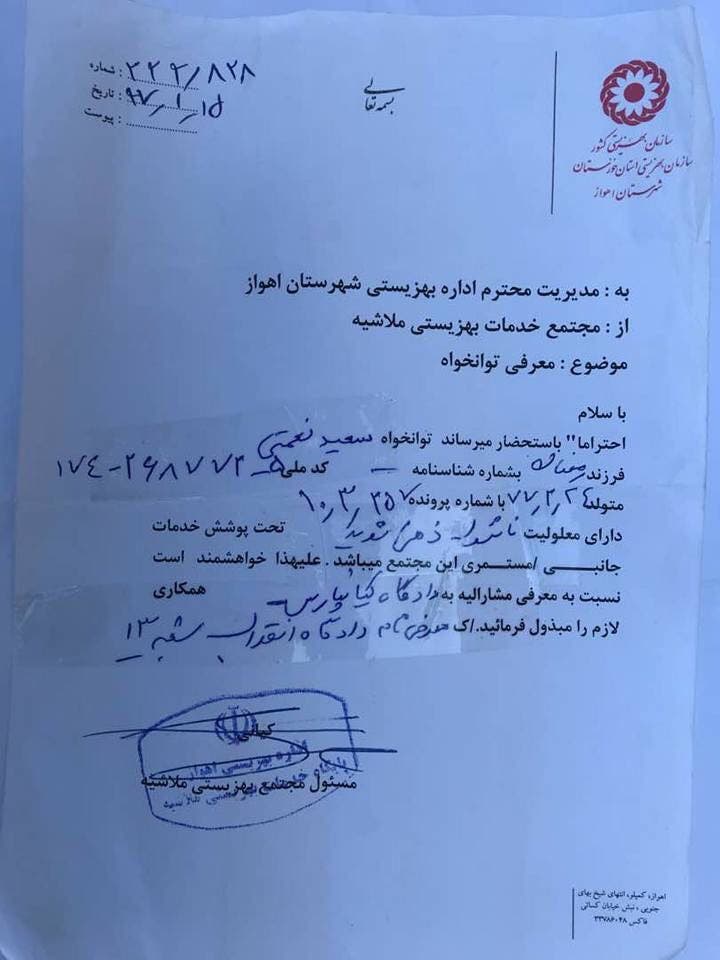 بسمه تعالی
شماره : ۳۳۹/۸۲۸
تاریخ : ۹۷/۱/۱۵
پیوست :
سازمان بهزیستی کشور
سازمان بهزیستی استان خوزستان
شهرستان اهواز
به : مدیریت محترم اداره بهزیستی شهرستان اهواز
از : مجتمع خدمات بهزیستی ملاشیه
موضوع : معرفی توانخواه
با سلام
احتراما" باستحضار میرساند توانخواه سعید نعمتی
فرزند رمضان بشماره شناسنامه – کد ملی
متولد با شماره پرونده ۱۰/۳/۳۵۷
دارای معلولیت ناشنوا- ذهنی شدید تحت پوشش خدمات
جانبی /مستمری این مجتمع میباشد . علیهذا خواهشمند است
نسبت به معرفی مشارالیه به دادگاه کیانپارس همکاری
لازم را مبذول فرمائید./ک دادگاه انقلاب شعبه ۱۳
کیانی
مسئول مجتمع بهزیستی ملاشیه
اداره بهزیستی اهواز
اهواز، کمپلو، انتهای شیخ بهای
جنوبی ، نبش خیابان کسائی
فاکس ۳۳۷۸۶۰۴۸